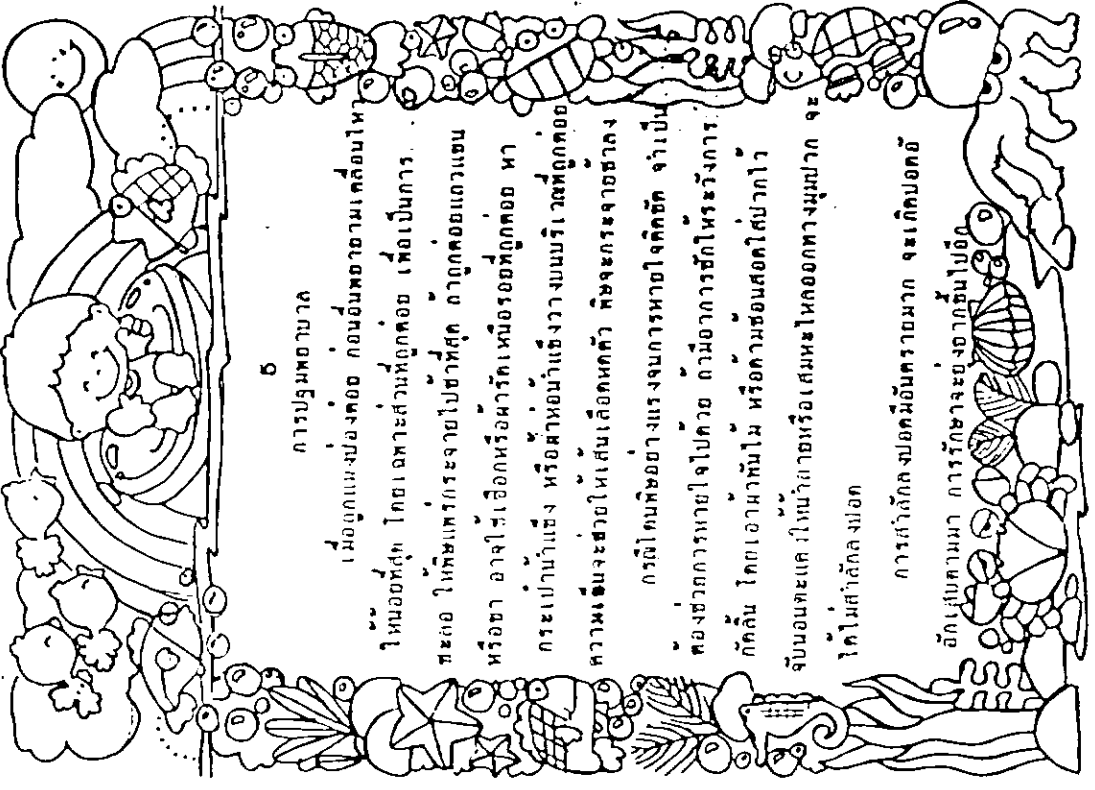 5
การปฐมพยาบาล
เมื่อถูกแมงป่องต่อย ก่อนอื่นพยายามเคลื่อนไหว
ให้น้อยที่สุด โดยเฉพาะส่วนที่ถูกต่อย เพื่อเป็นการ
ชะลอ ให้พิษแพร่กระจายไปช้าที่สุด ถ้าถูกต่อยแถวแขน
หรือขา อาจใช้เชือกหรือผ้ารัดเหนือรอยที่ถูกต่อย หา
กระเป๋าน้ำแข็ง หรือผ้าห่อน้ำแข็งวางบนบริเวณที่ถูกต่อย
ความเย็นจะช่วยให้เส้นเลือดหดตัว พิษจะกระจายช้าลง
กรณีโดนพิษอย่างแรงจนการหายใจติดขัด จำเป็น
ต้องช่วยการหายใจไปด้วย ถ้ามีอาการชักให้ระวังการ
กัดลิ้น โดยเอาผ้าพันไม้ หรือด้ามช้อนสอดใส่ปากไว้
จับนอนตะแคงให้น้ำลายหรือเสมหะไหลออกทางมุมปาก จะ
ได้ไม่สำลักลงปอด
การสำลักลงปอดมีอันตรายมาก จะเกิดปอดอั
อักเสบตามมา การรักษาจะยุ่งยากขึ้นไปอีก